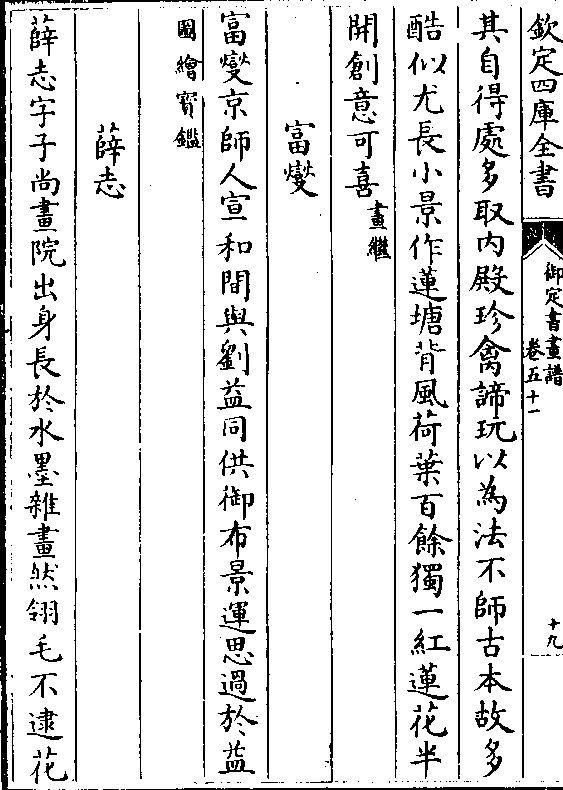 欽定四庫全書
御定書畫譜
卷五十一
十九
其自得處多取內殿珍禽諦玩以為法不師古本故多
酷似尤長小景作蓮塘背風荷葉百餘獨一紅蓮花半
開創意可喜畫繼
富燮
富燮京師人宣和間與劉益同供御布景運思過於益
圖繪寳鑑
薛志
薛志字子尚畫院出身長於水墨雜畫然翎毛不逮花